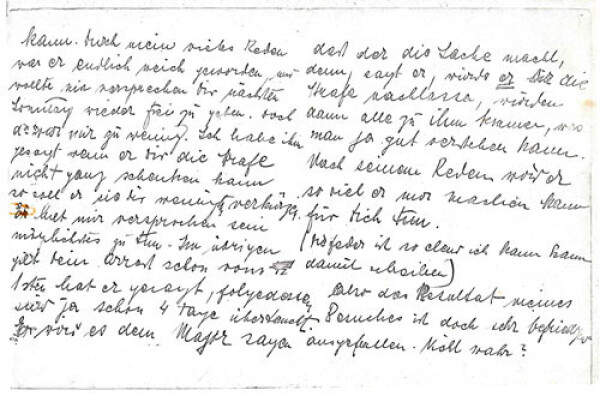 kann. Durch mein vieles Reden
war er endlich weich geworden, und
wollte mir versprechen Dir nächsten
Sonntag wieder frei zu geben. Doch
das war mir zu wenig. Ich habe ihm
gesagt wenn er Dir die Strafe
nicht ganz schenken kann
so soll er sie Dir wenigst. verkürz.
Er hat mir versprochen sein
möglichstes zu tun. Im übrigen
gilt Dein Arrest schon vom
1sten hat er gesagt, folgedessen
sind ja schon 4 Tage überhaupt
Er wird es dem Major sagen
daß der die Sache macht,
denn, sagt er, würde er Dir die
Strafe nachlassen, würden
dann alle zu ihm kommen, was
man ja gut verstehen kann.
Nach seinem Reden wird er
so viel er nur machen kann
für Dich tun.
(Die Feder ist so elend ich kann kaum
damit schreiben)
Also das Resultat meines
Besuches ist doch sehr befriedigt
ausgefallen. Nicht wahr?